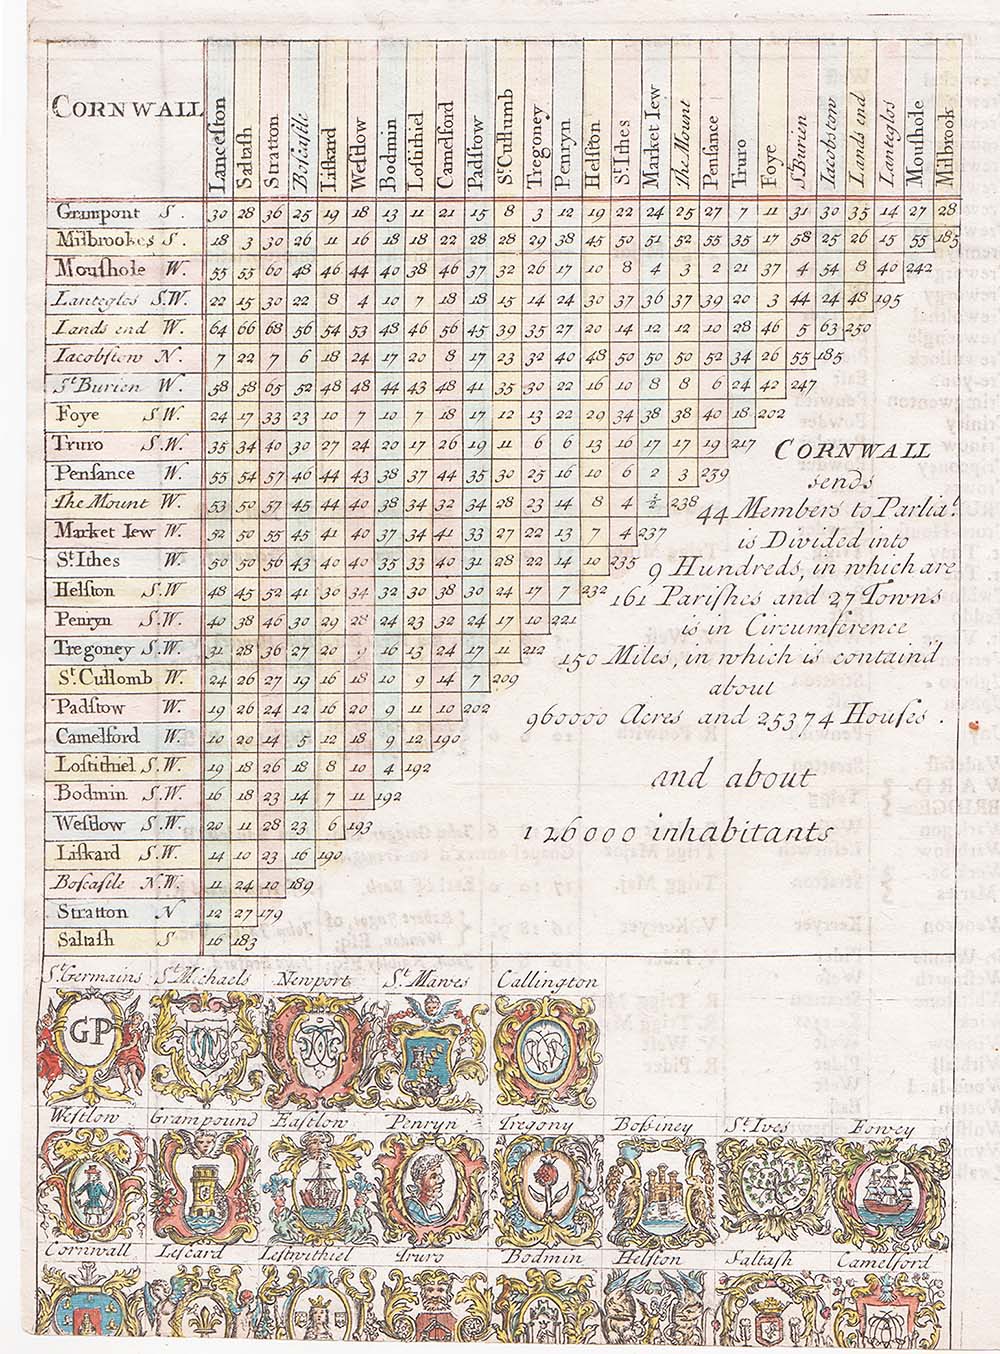 CORNWALL Lanceſton Saltaſh Stratton Boſcaſtle Liſkard Weſtlow Bodmin Loſtithiel Camelford Padſtow St. Cullumb Tregoney Penryn Helſton St. Ithes Market Iew The Mount Penſance Truro Foye St. Burien Iacobſtow Lands end Lanteglos Mouſhole Milbrook
Grampont S. 30 28 36 25 19 18 13 11 21 15 8 3 12 19 22 24 25 27 7 11 31 30 35 14 27 28
Milbrookes S. 18 3 30 26 11 16 18 18 22 28 28 29 38 45 50 51 52 55 35 17 58 25 26 15 55 185
Mouſhole W. 55 55 60 48 46 44 40 38 46 37 32 26 17 10 8 4 3 2 21 37 4 54 8 40 242
Lanteglos S.W. 22 15 30 22 8 4 10 7 18 18 15 14 24 30 37 36 37 39 20 3 44 24 48 195
Lands end W. 64 66 68 56 54 53 48 46 56 45 39 35 27 20 14 12 12 10 28 46 5 63 250
Iacobſtow N. 7 22 7 6 18 24 17 20 8 17 23 32 40 48 50 50 50 52 34 26 55 185
St. Burien W. 58 58 65 52 48 48 44 43 48 41 35 30 22 16 10 8 8 6 24 42 247
Foye S.W. 24 17 33 23 10 7 10 7 18 17 12 13 22 29 34 38 38 40 18 202
Truro S.W. 35 34 40 30 27 24 20 17 26 19 11 6 6 13 16 17 17 19 217
Penſance W. 55 54 57 46 44 43 38 37 44 35 30 25 16 10 6 2 3 239
The Mount W. 53 50 57 45 44 40 38 34 32 34 28 23 14 8 4 ½ 238
Market Iew W. 52 50 55 45 41 40 37 34 41 33 27 22 13 7 4 237
St. Ithes W. 50 50 56 43 40 40 35 33 40 31 28 22 14 10 235
Helſton S.W 48 45 52 41 30 34 32 30 38 30 24 17 7 232
Penryn S.W. 40 38 46 30 29 28 24 23 32 24 17 10 221
Tregoney S.W. 31 28 36 27 20 9 16 13 24 17 11 212
St. Cullomb W. 24 26 27 19 16 18 10 9 14 7 209
Padſtow W. 19 26 24 12 16 20 9 11 10 202
Camelford W. 10 20 14 5 12 18 9 12 190
Loſtithiel S.W. 19 18 26 18 8 10 4 192
Bodmin S.W. 16 18 23 14 7 11 192
Weſtlow S.W. 20 11 28 23 6 193
Liſkard S.W. 14 10 23 16 190
Boſcaſtle N.W. 11 24 10 189
Stratton N 12 27 179
Saltaſh S 16 183
CORNWALL
sends
44 Members to Parliat.
is Divided into
9 Hundreds, in which are
161 Pariſhes and 27 Towns
is in Circumference
150 Miles, in which is containd
about
960000 Acres and 25374 Houſes.
and about
126000 inhabitants
St. Germains St. Michaels Newport St. Mawes Callington
GP
Weſtlow Grampound Eaſtlow Penryn Tregony Boſsiney St. Ives Fowey
Cornwall Leſcard Leſtwithiel Truro Bodmin Helſton Saltaſh Camelford